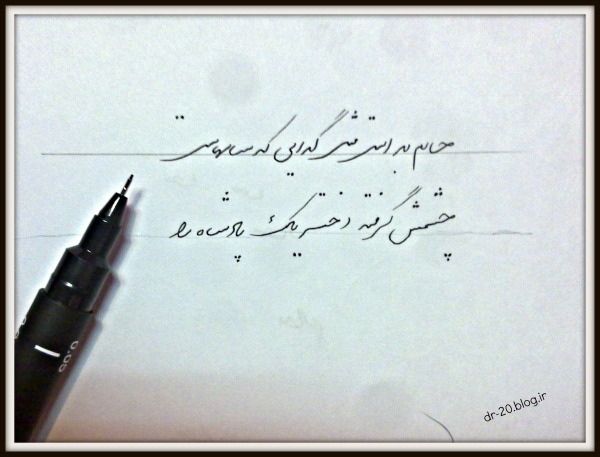 حالم بد است مثل گدایی که سالهاست
چشمش گرفته دختر یک پادشاه را
dr-20.blog.ir